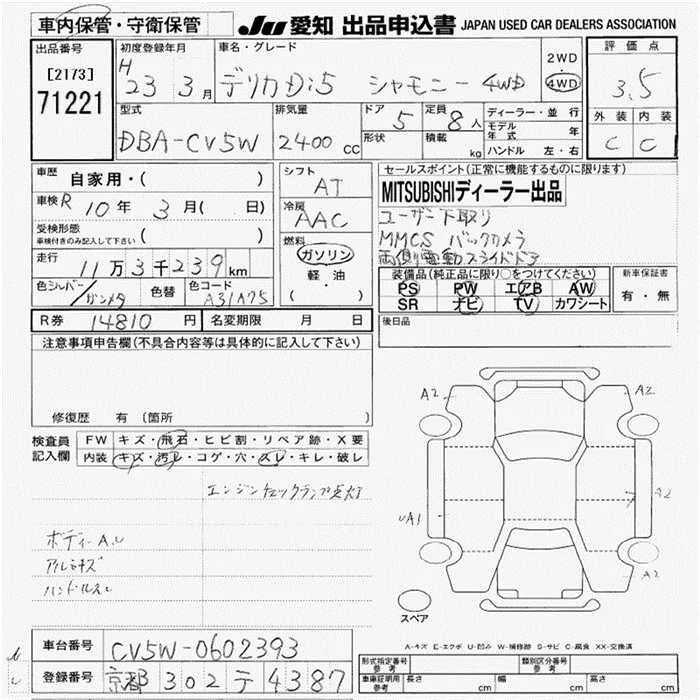 車内保管・守衛保管 JU 愛知 出品申込書 JAPAN USED CAR DEALERS ASSOCIATION
出品番号 初度登録年月 車名・グレード 2WD 評価点
[2173] H 23 3月 デリカD:5 シャモニー 4WD 4WD 3.5
71221
型式 排気量 ドア 定員 ディーラー・並行 外装 内装
DBA-CV5W 2400 CC 5 8人 モデル年式 年 C C
形状 積載 kg ハンドル 左・右
車歴 自家用・( ) シフト AT セールスポイント(正常に機能するものに限ります)
車検 R 10年 3月( 日) 冷房 AAC MITSUBISHIディーラー出品
ユーザー下取り
受検形態 車検付きのみ記入して下さい ( ) MMCS バックカメラ
燃料 ガソリン 両側電動スライドドア
走行 11万3千239km 軽油 ( )
装備品(純正品に限り○をつけてください) 新車保証書
色 シルバー/ガンメタ 色替 色コード A31A75 PS PW エアB AW 有・無
SR ナビ TV カワシート
R券 14810円 名変期限 月 日 後日品
注意事項申告欄(不具合内容等は具体的に記入して下さい)
A2 A2
修復歴 有 (箇所
検査員記入欄 FW キズ・飛石・ヒビ割・リペア跡・X要
内装 キズ・汚レ・コゲ・穴・スレ・キレ・破レ
エンジンチェックランプ点灯 A2
UA1
ボディーA.U
アルミキズ A2
ハンドルスレ
スペア
A-キズ E-エクボ U-凹み W-補修跡 S-サビ C-腐食 XX-交換済
車台番号 CV5W-0602393
型式指定番号 参考 類別区分番号 参考
登録番号 京都 302 テ 4387
車庫証明用 参考 長さ cm 幅 cm 高さ cm